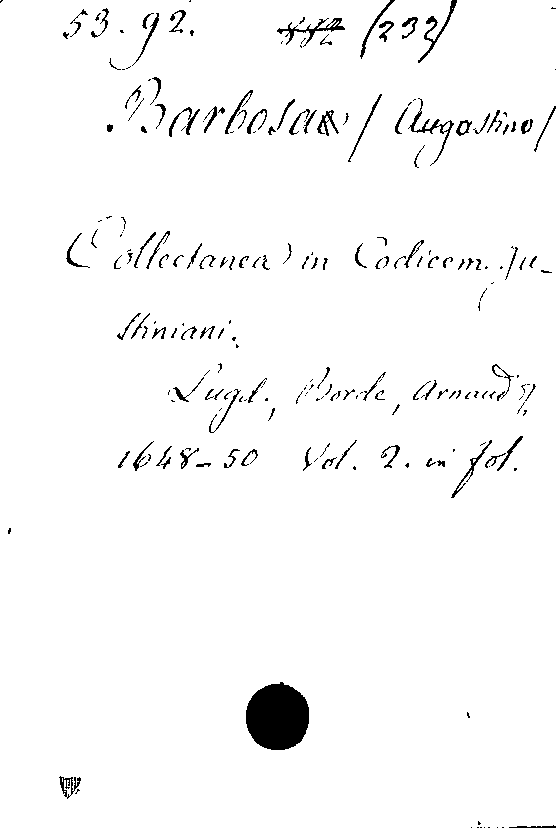 53.92. 882 (232)
Barbosa / Augostino /
(Collectanea) in Codicem Ju-
stiniani.
Lugd., Borde, Arnaud &
1648-50 Vol. 2. in fol.